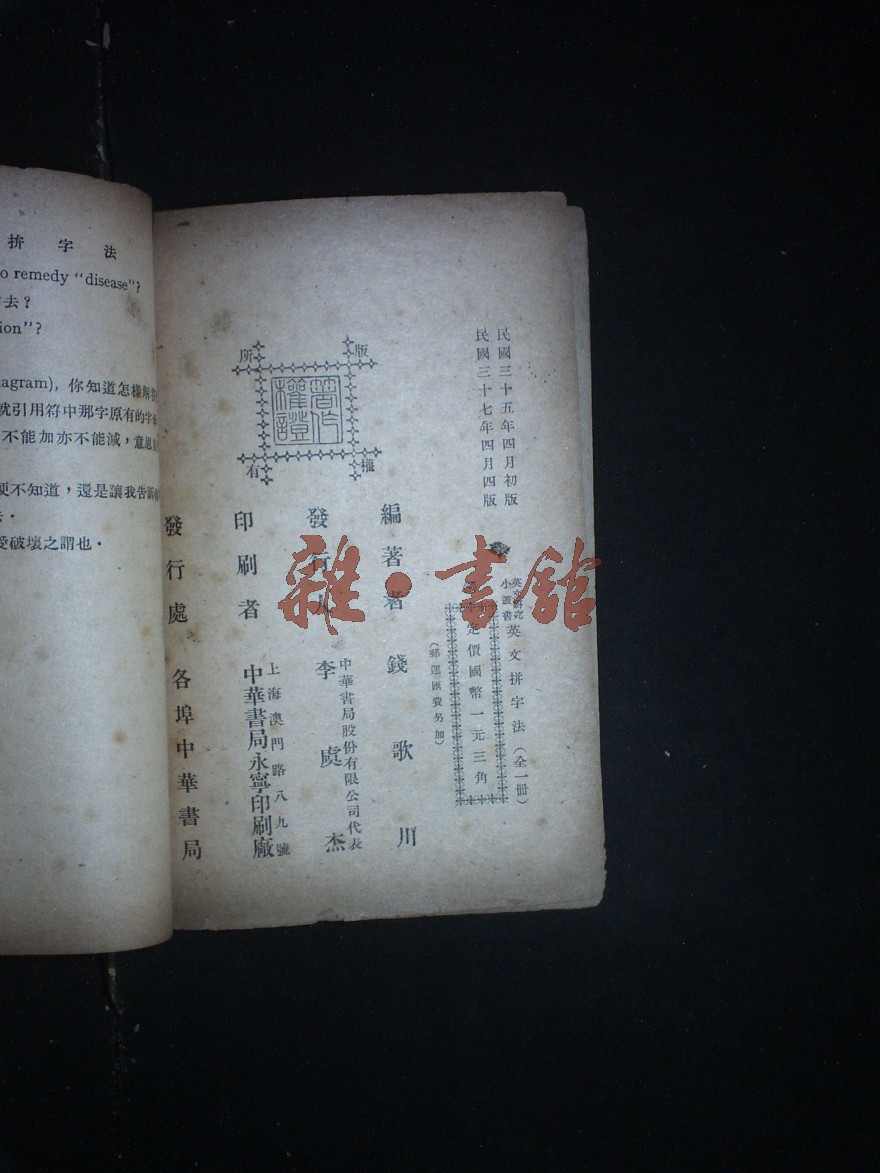 拚字法
o remedy "disease"?
去？
ion"?
agram), 你知道怎樣解答
就引用符中那字原有的字
不能加亦不能減，意思
便不知道，還是讓我告訴
愛破壞之謂也．
民國三十五年四月初版
民國三十七年四月四版
英文研究小叢書 英文拼字法（全一冊）
定價國幣一元三角
（郵運匯費另加）
版權所有
著作權證
編著者 錢歌川
發行人 李虞杰
中華書局股份有限公司代表
印刷者 中華書局永寧印刷廠
上海澳門路八九號
發行處 各埠中華書局
雜·書館